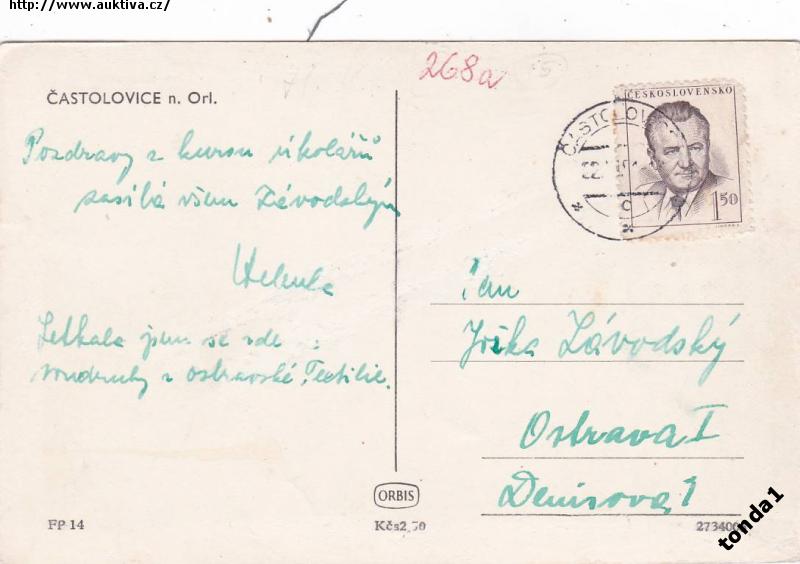 http://www.auktiva.cz/
268a
ČASTOLOVICE n. Orl.
Pozdravy z kursu úkolářů
zasílá všem Závodským
Helenka
Setkala jsem se zde
soudruhy z ostravské Textilie.
ČESKOSLOVENSKO
ČASTOLOV
1 50
Pan
Jožka Závodský
Ostrava I
Denisova 1
ORBIS
FP 14
Kčs 2,70
273400
tonda1